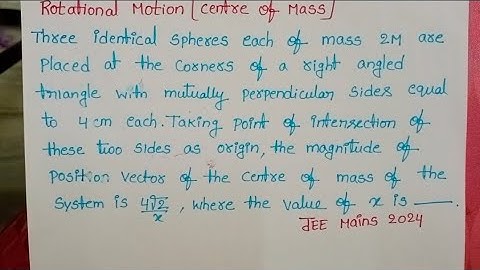 Rotational Motion [Centre of Mass]
Three identical spheres each of mass 2M are
placed at the corners of a right angled
triangle with mutually perpendicular sides equal
to 4 cm each. Taking point of intersection of
these two sides as origin, the magnitude of
position vector of the centre of mass of the
system is 4√2/x, where the value of x is ___.
JEE Mains 2024